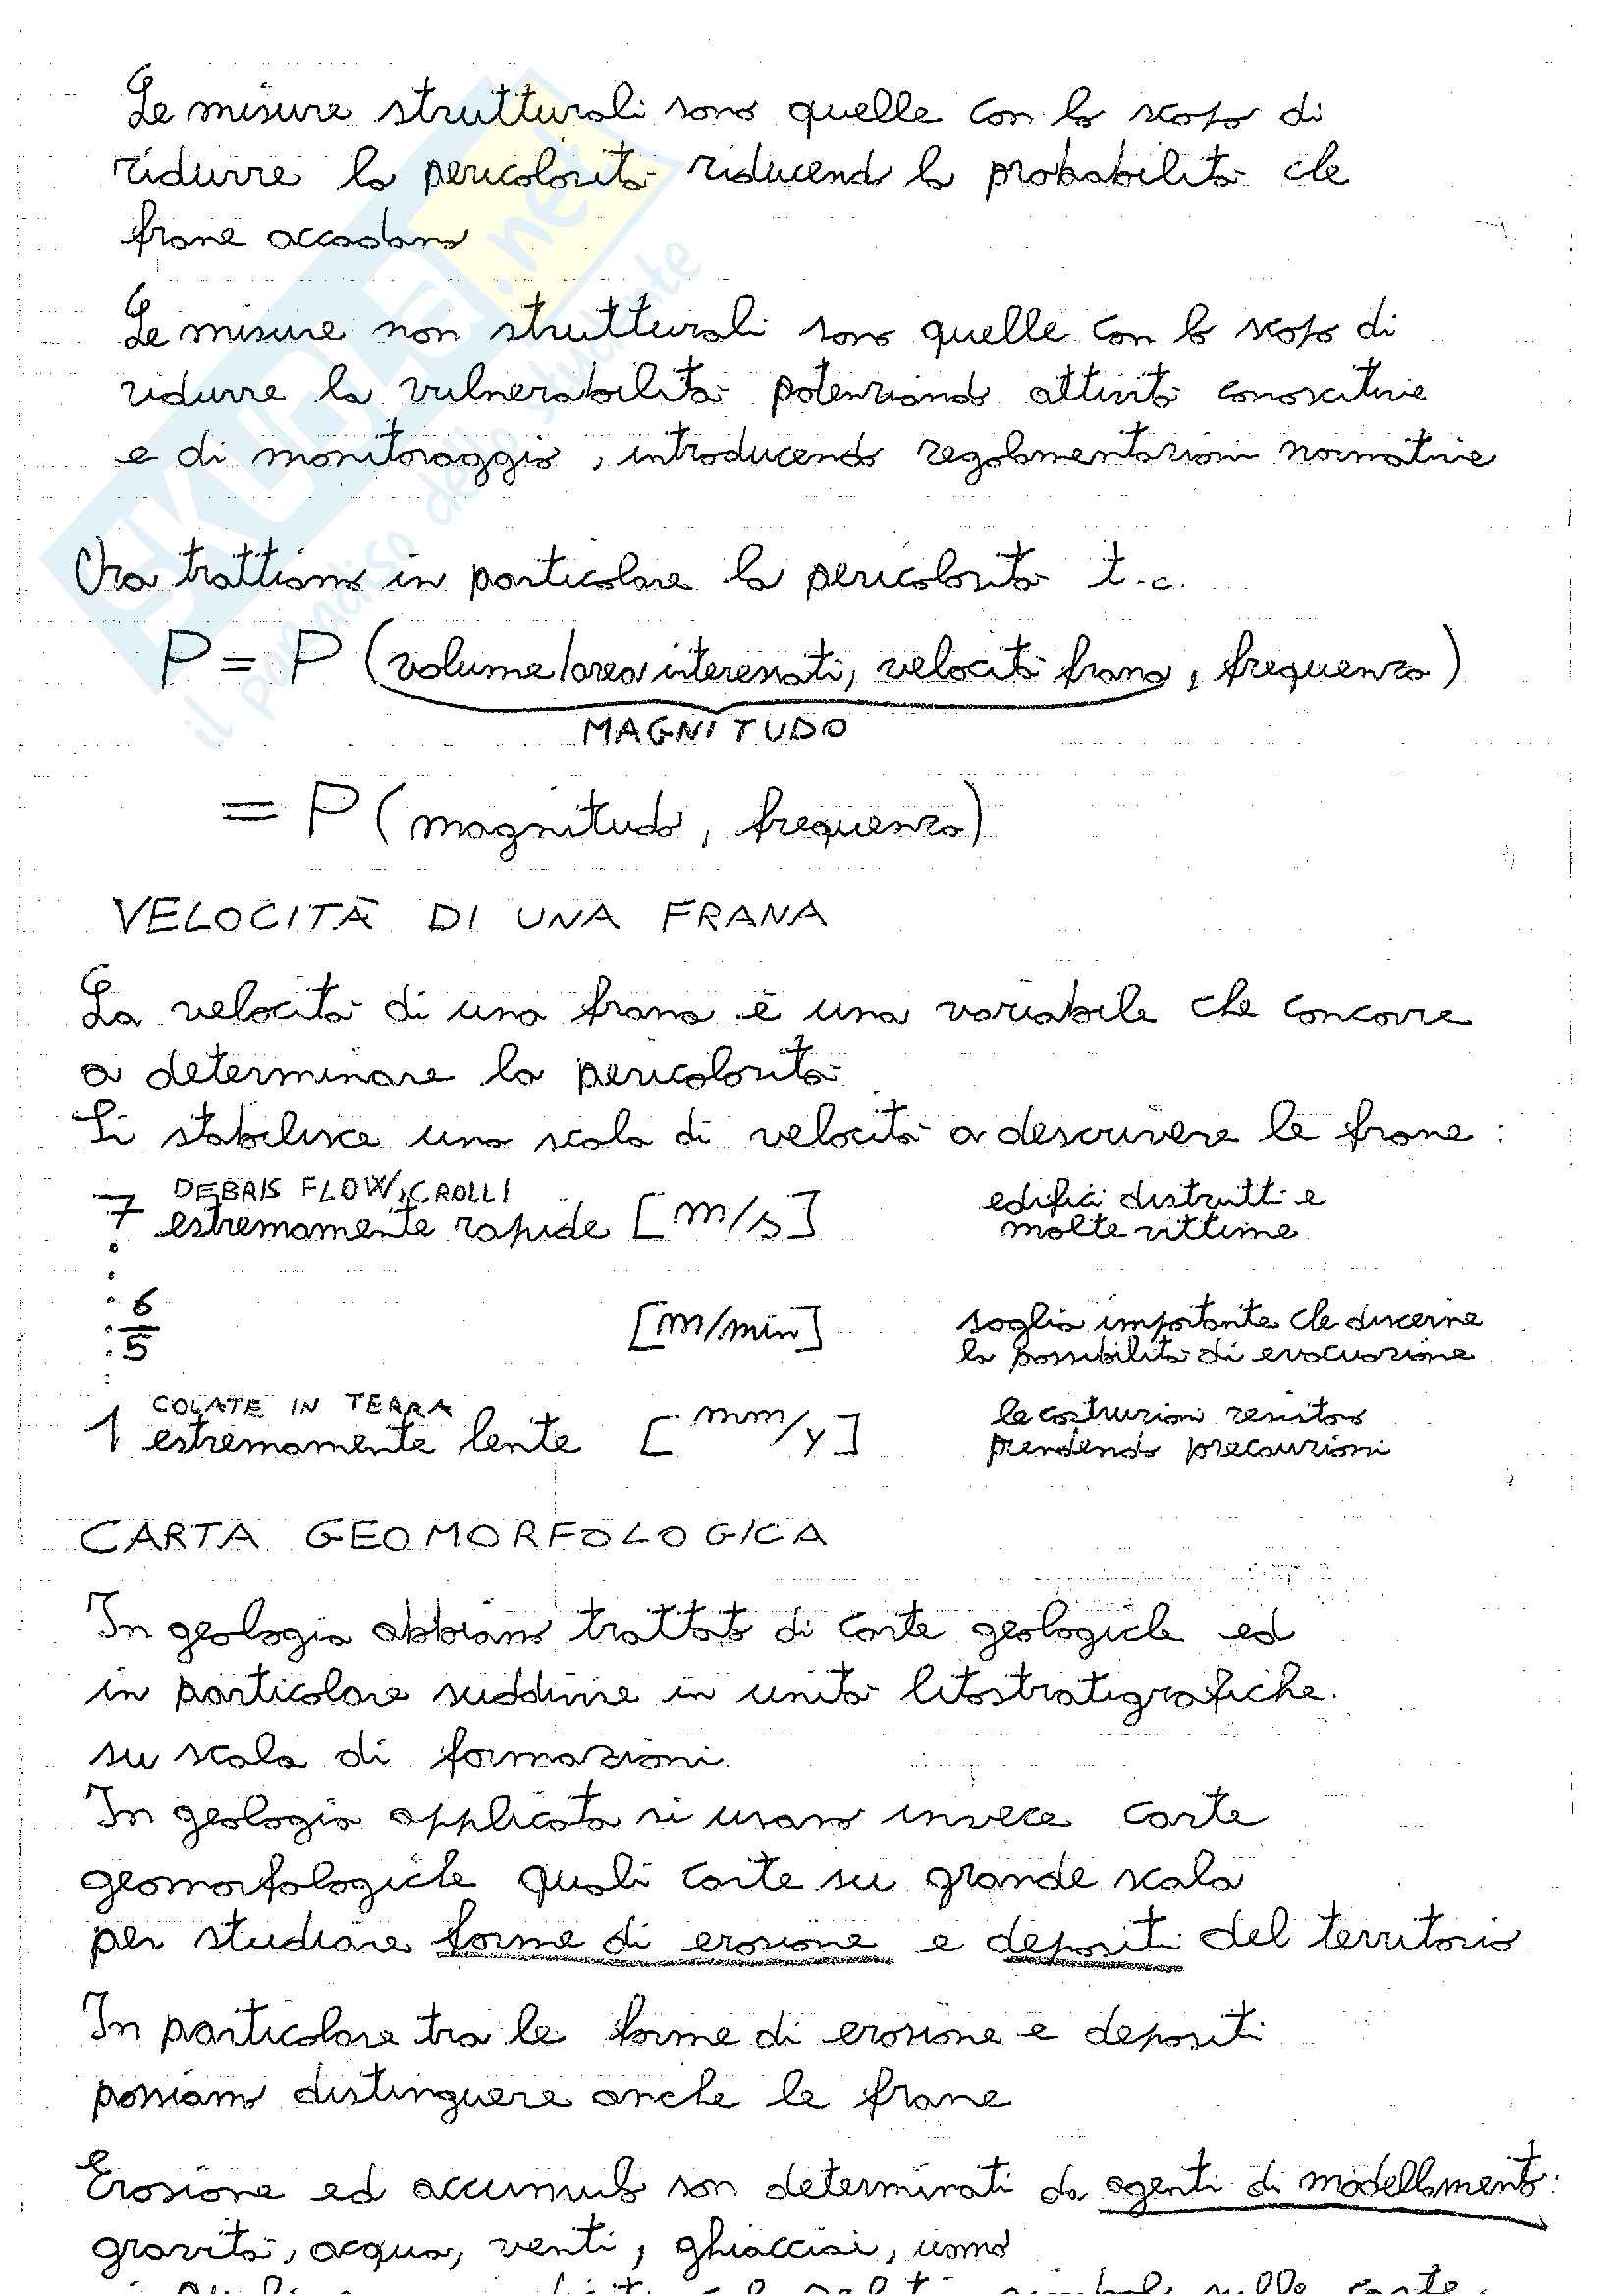 Le misure strutturali sono quelle con lo scopo di
ridurre la pericolosità riducendo la probabilità che
frane accadano
Le misure non strutturali sono quelle con lo scopo di
ridurre la vulnerabilità potenziando attività conoscitive
e di monitoraggio, introducendo regolamentazioni normative
Ora trattiamo in particolare la pericolosità t.c.
P = P (volume/area interessati, velocità frana, frequenza)
MAGNITUDO
= P (magnitudo, frequenza)
VELOCITÀ DI UNA FRANA
La velocità di una frana è una variabile che concorre
a determinare la pericolosità
Si stabilisce una scala di velocità a descrivere le frane:
DEBRIS FLOW, CROLLI
7 estremamente rapide [m/s] edifici distrutti e
molte vittime
6
5 [m/min] soglia importante che discerne
la possibilità di evacuazione
COLATE IN TERRA
1 estremamente lente [mm/y] le costruzioni resistono
prendendo precauzioni
CARTA GEOMORFOLOGICA
In geologia abbiamo trattato di carte geologiche ed
in particolare suddivise in unità litostratigrafiche.
su scala di formazioni.
In geologia applicata si usano invece carte
geomorfologiche quali carte su grande scala
per studiare forme di erosione e depositi del territorio
In particolare tra le forme di erosione e depositi
possiamo distinguere anche le frane
Erosione ed accumulo son determinati da agenti di modellamento:
gravità, acqua, venti, ghiacciai, uomo
SKUOLA.net
il paradiso dello studente